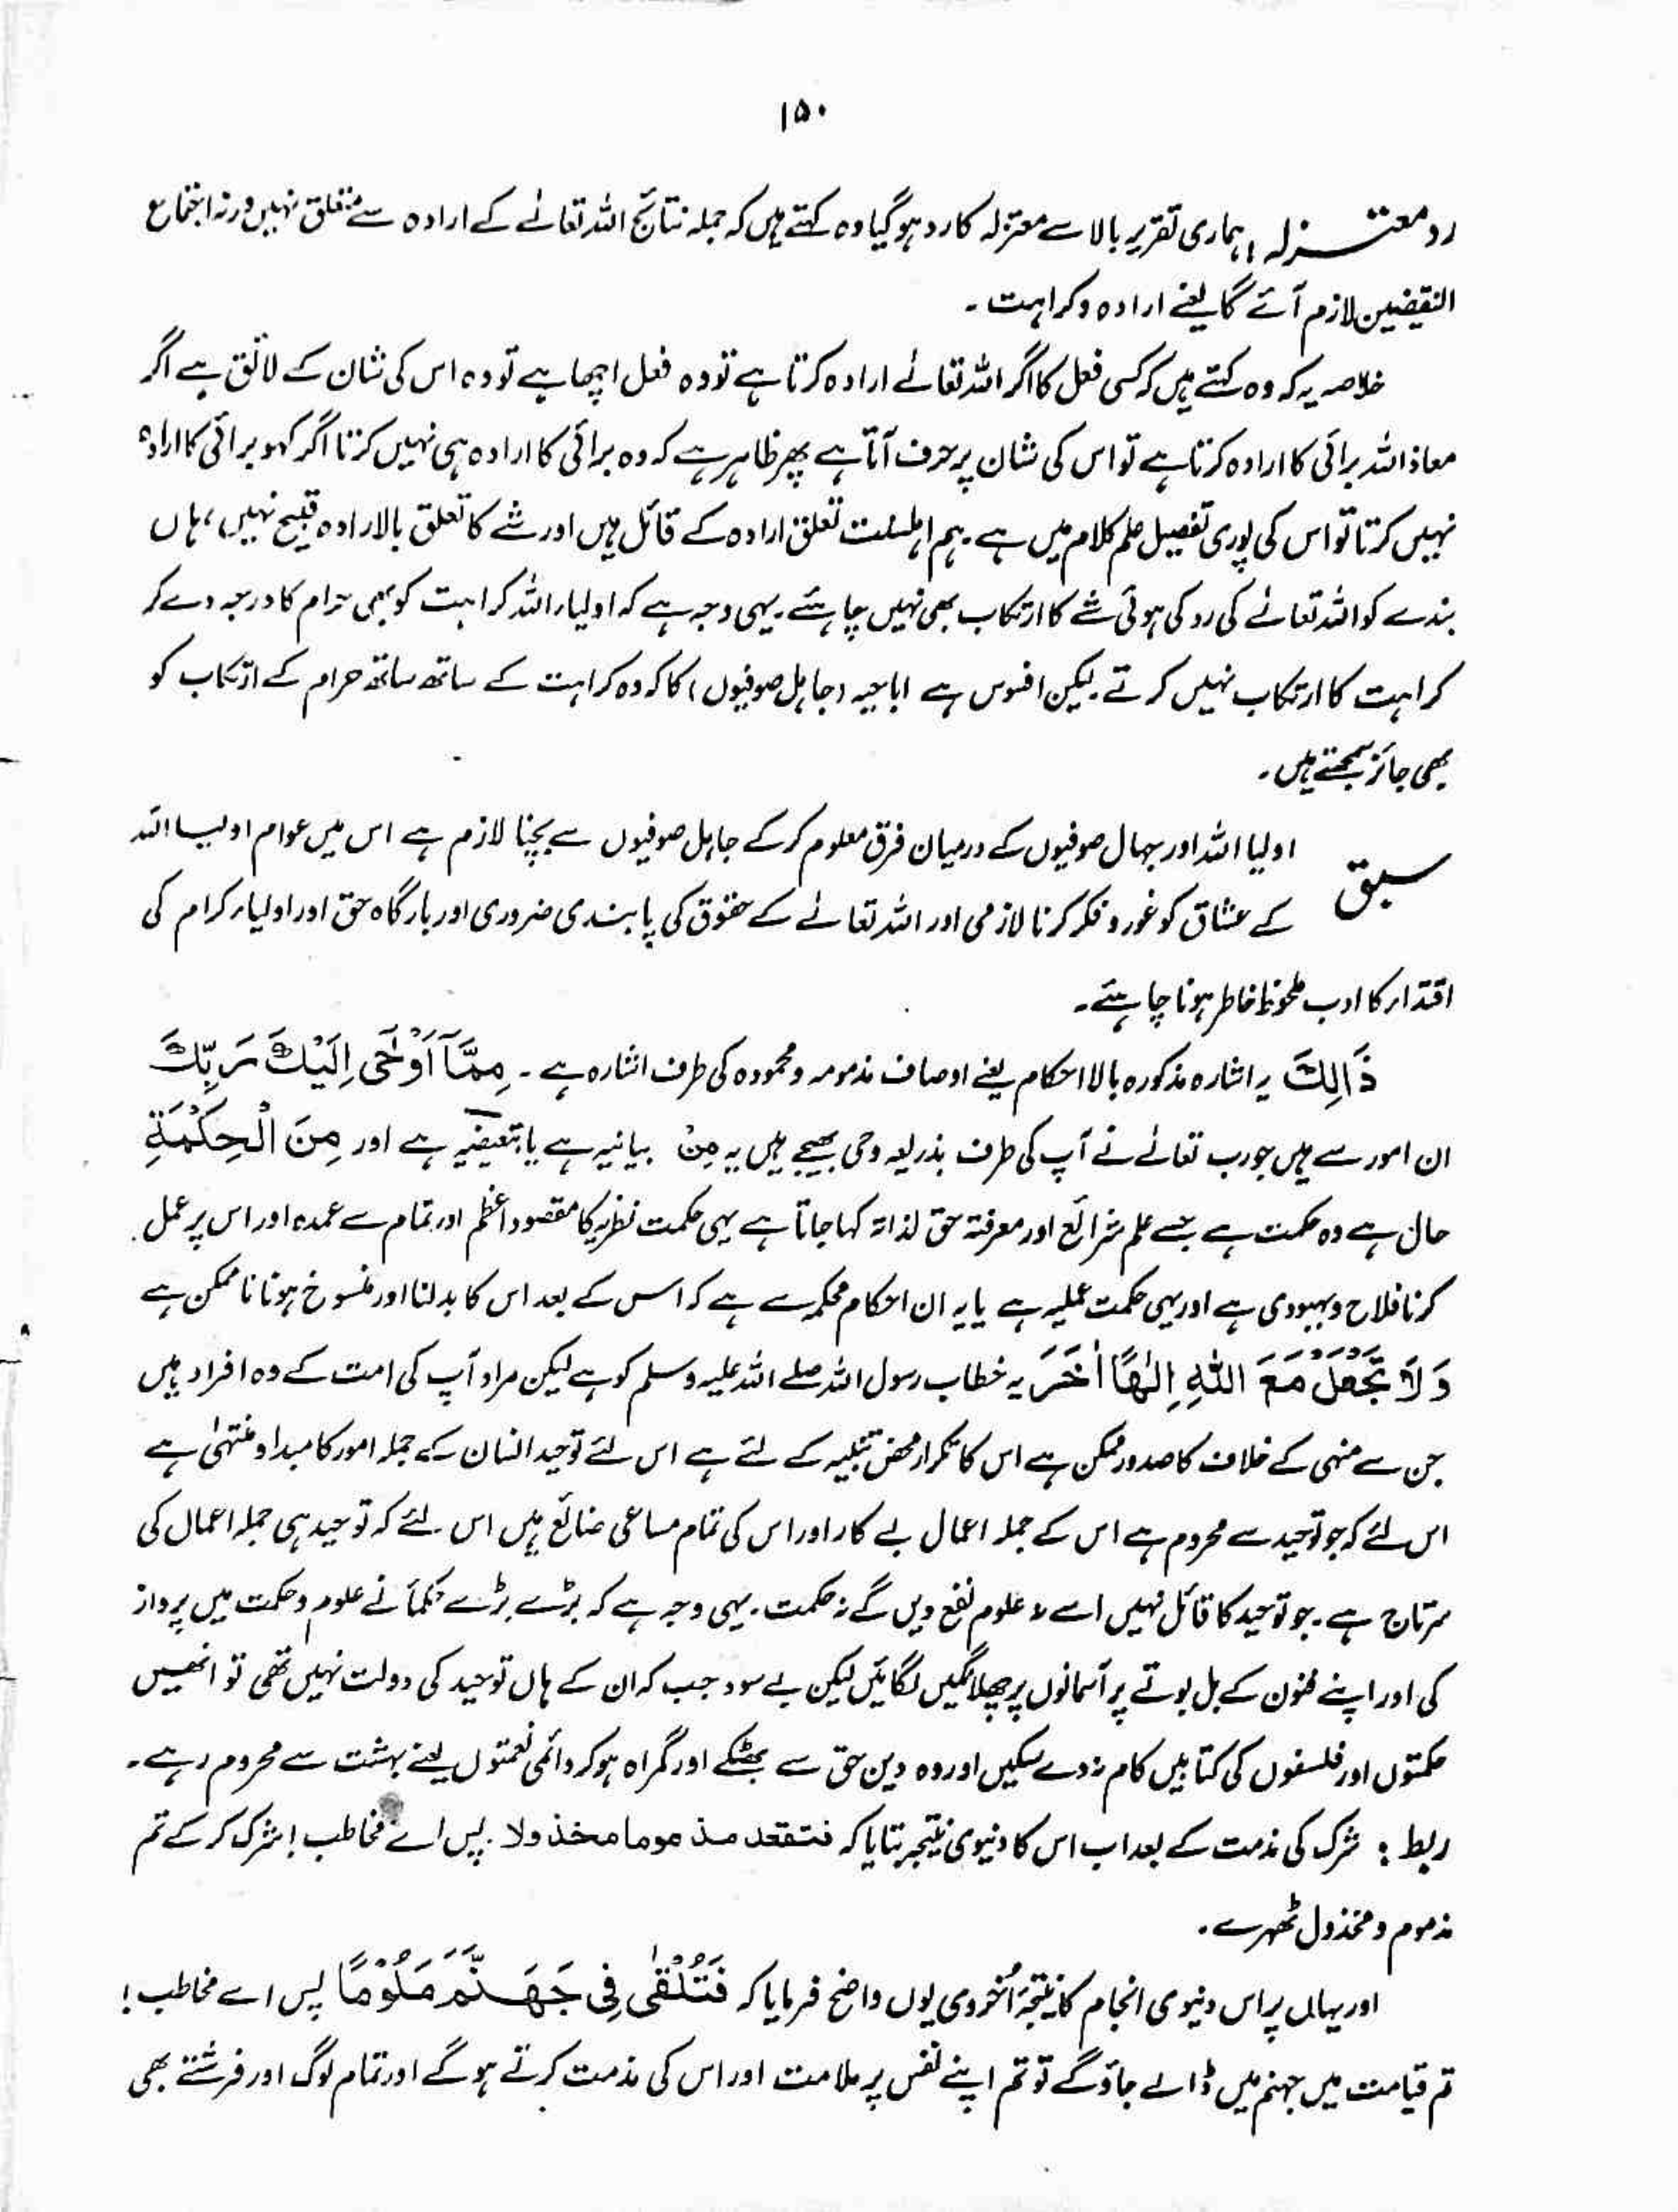 ۱۵۰
رد معتزلہ ہماری تقریر بالا سے معتزلہ کا رد ہو گیا وہ کہتے ہیں کہ جملہ نتائج اللہ تعالےٰ کے ارادہ سے متعلق نہیں ورنہ اجتماع
النقیضین لازم آئے گا یعنے ارادہ و کراہت ۔
خلاصہ یہ کہ وہ کہتے ہیں کہ کسی فعل کا اگر اللہ تعالےٰ ارادہ کرتا ہے تو وہ فعل اچھا ہے تو وہ اس کی شان کے لائق ہے اگر
معاذ اللہ برائی کا ارادہ کرتا ہے تو اس کی شان پر حرف آتا ہے پھر ظاہر ہے کہ وہ برائی کا ارادہ ہی نہیں کرتا اگر کہو برائی کا ارادہ
نہیں کرتا تو اس کی پوری تفصیل علم کلام میں ہے ۔ ہم اہلسنت تعلق ارادہ کے قائل ہیں اور شے کا تعلق بالارادہ قبیح نہیں ، ہاں
بندے کو اللہ تعالےٰ کی رد کی ہوئی شے کا ارتکاب بھی نہیں چاہئے ۔ یہی وجہ ہے کہ اولیاء اللہ کراہت کو بھی حرام کا درجہ دے کر
کراہت کا ارتکاب نہیں کرتے ۔ لیکن افسوس ہے اباحیہ (جاہل صوفیوں) کا کہ وہ کراہت کے ساتھ ساتھ حرام کے ارتکاب کو
بھی جائز سمجھتے ہیں ۔
سبق اولیا اللہ اور جہال صوفیوں کے درمیان فرق معلوم کر کے جاہل صوفیوں سے بچنا لازم ہے اس میں عوام اولیا اللہ
کے عشاق کو غور و فکر کرنا لازمی اور اللہ تعالےٰ کے حقوق کی پابندی ضروری اور بارگاہ حق اور اولیاء کرام کی
اقتدار کا ادب ملحوظ خاطر ہونا چاہیئے ۔
ذَالِكَ یہ اشارہ مذکورہ بالا احکام یعنے اوصاف مذمومہ و محمودہ کی طرف اشارہ ہے ۔ مِمَّآ اَوْحٰى اِلَيْكَ رَبُّكَ
ان امور سے ہیں جو رب تعالےٰ نے آپ کی طرف بذریعہ وحی بھیجے ہیں یہ مِنْ بیانیہ ہے یا تبعیضیہ ہے اور مِنَ الْحِكْمَةِ
حال ہے وہ حکمت ہے جسے علم شرائع اور معرفتہ حق لذاتہ کہا جاتا ہے یہی حکمت نظریہ کا مقصود اعظم اور تمام سے عمدہ اور اس پر عمل
کرنا فلاح و بہبودی ہے اور یہی حکمت عملیہ ہے یا یہ ان احکام محکمہ سے ہے کہ اس کے بعد اس کا بدلنا اور منسوخ ہونا ناممکن ہے
وَلَا تَجْعَلْ مَعَ اللهِ اِلٰهًا اٰخَرَ یہ خطاب رسول اللہ صلے اللہ علیہ وسلم کو ہے لیکن مراد آپ کی امت کے وہ افراد ہیں
جن سے منہی کے خلاف کا صدور ممکن ہے اس کا تکرار محض تنبیہ کے لئے ہے اس لئے توحید انسان کے جملہ امور کا مبدا و منتہیٰ ہے
اس لئے کہ جو توحید سے محروم ہے اس کے جملہ اعمال بے کار اور اس کی تمام مساعی ضائع ہیں اس لئے کہ توحید ہی جملہ اعمال کی
سرتاج ہے ۔ جو توحید کا قائل نہیں اسے نہ علوم نفع دیں گے نہ حکمت ۔ یہی وجہ ہے کہ بڑے بڑے حکمأ نے علوم و حکمت میں پرواز
کی اور اپنے فنون کے بل بوتے پر آسمانوں پر چھلانگیں لگائیں لیکن بے سود جب کہ ان کے ہاں توحید کی دولت نہیں تھی تو انھیں
حکمتوں اور فلسفوں کی کتابیں کام نہ دے سکیں اور وہ دین حق سے بھٹکے اور گمراہ ہو کر دائمی نعمتوں یعنے بہشت سے محروم رہے ۔
ربط : شرک کی مذمت کے بعد اب اس کا دنیوی نتیجہ بتایا کہ فتقعد مذموما مخذولا پس اے مخاطب ! شرک کر کے تم
مذموم و مخذول ٹھہرے ۔
اور یہاں پر اس دنیوی انجام کا نتیجۂ اُخروی یوں واضح فرمایا کہ فَتُلْقٰى فِي جَهَنَّمَ مَلُوْمًا پس اے مخاطب !
تم قیامت میں جہنم میں ڈالے جاؤ گے تو تم اپنے نفس پر ملامت اور اس کی مذمت کرتے ہو گے اور تمام لوگ اور فرشتے بھی